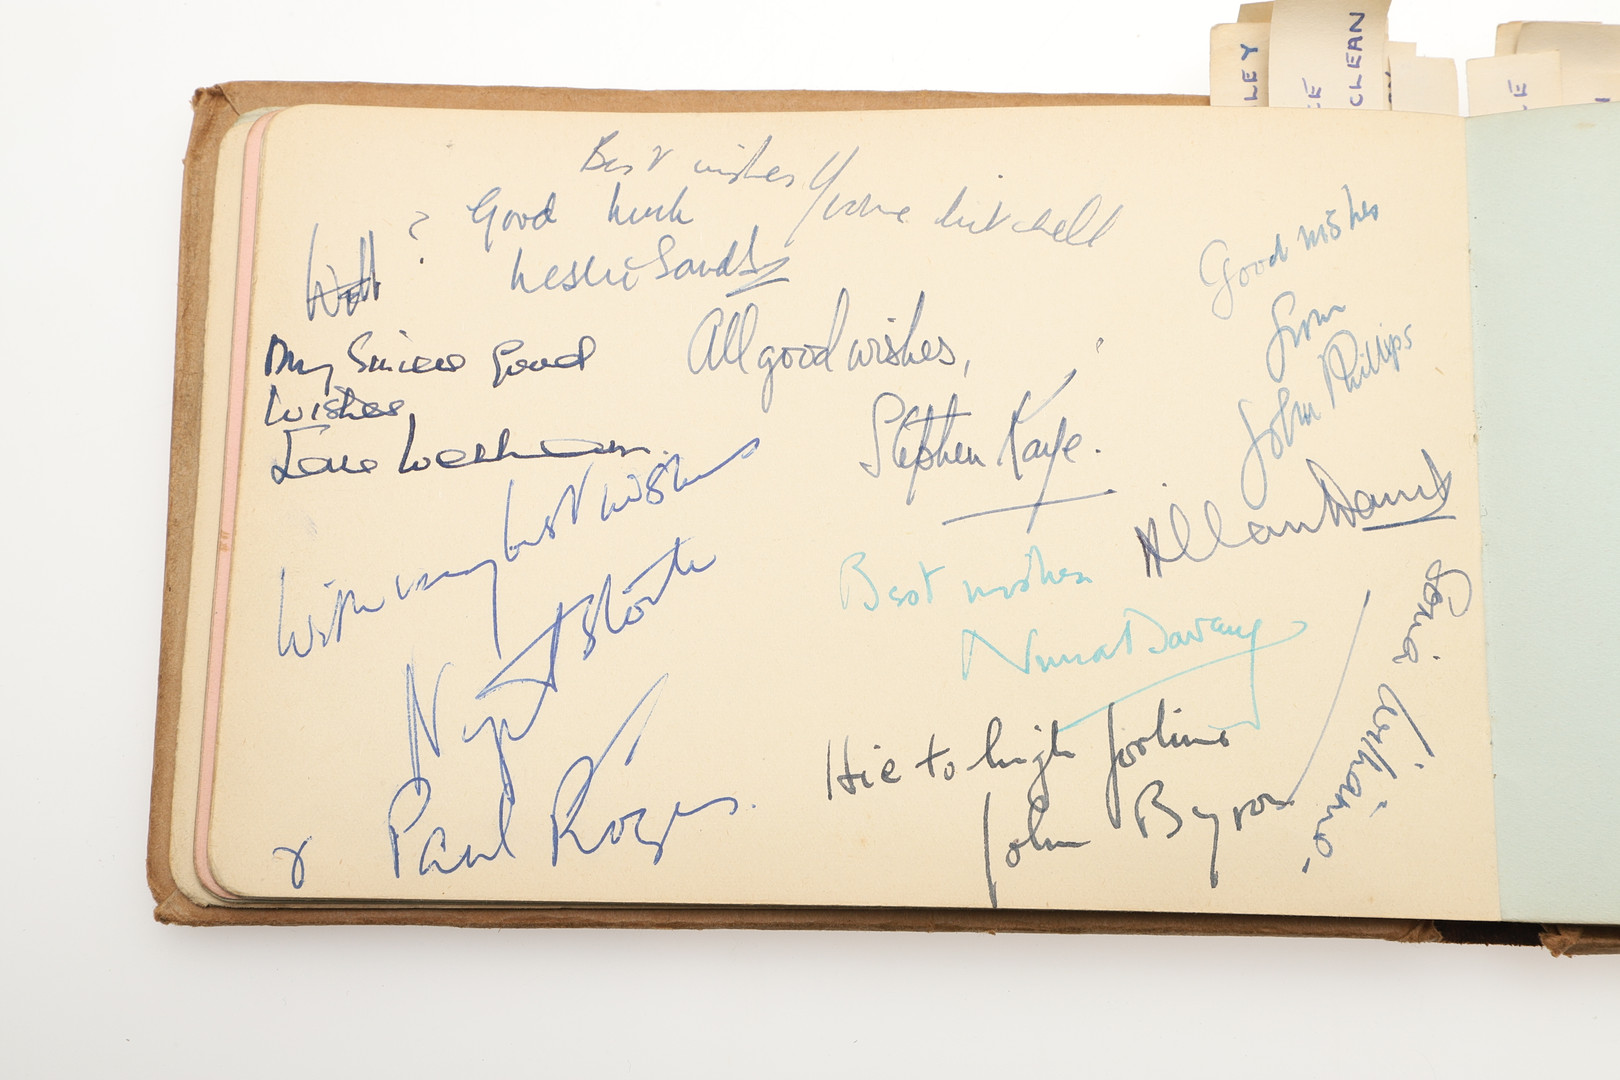 LEY
CLEAN
Best wishes Yvonne Mitchell
Good luck
Leslie Sands
Well ?
My Sincere Good
Wishes
All good wishes,
Stephen Kaye.
Good wishes
from
John Phillips
With very best wishes
Nigel Stock
& Paul Rogers.
Allan Davis
Best wishes
Hie to high fortune
John Byron
Sonia